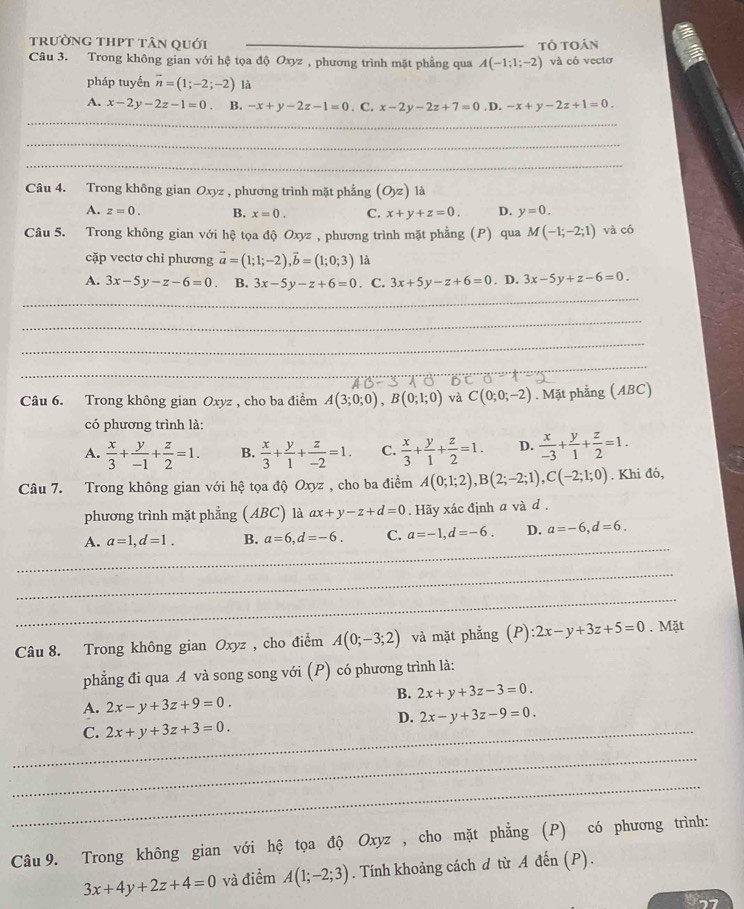 TRƯỜNG THPT TÂN QUỚI TỔ TOÁN
Câu 3. Trong không gian với hệ tọa độ Oxyz , phương trình mặt phẳng qua A(−1;1;−2) và có vectơ
pháp tuyến n⃗ = (1;−2;−2) là
A. x−2y−2z−1=0. B. −x+y−2z−1=0. C. x−2y−2z+7=0.D. −x+y−2z+1=0.
Câu 4. Trong không gian Oxyz , phương trình mặt phẳng (Oyz) là
A. z=0. B. x=0. C. x+y+z=0. D. y=0.
Câu 5. Trong không gian với hệ tọa độ Oxyz , phương trình mặt phẳng (P) qua M(−1;−2;1) và có
cặp vectơ chỉ phương a⃗=(1;1;−2),b⃗=(1;0;3) là
A. 3x−5y−z−6=0. B. 3x−5y−z+6=0. C. 3x+5y−z+6=0. D. 3x−5y+z−6=0.
Câu 6. Trong không gian Oxyz , cho ba điểm A(3;0;0), B(0;1;0) và C(0;0;−2). Mặt phẳng (ABC)
có phương trình là:
A. x/3+y/−1+z/2=1. B. x/3+y/1+z/−2=1. C. x/3+y/1+z/2=1. D. x/−3+y/1+z/2=1.
Câu 7. Trong không gian với hệ tọa độ Oxyz , cho ba điểm A(0;1;2),B(2;−2;1),C(−2;1;0). Khi đó,
phương trình mặt phẳng (ABC) là ax+y−z+d=0. Hãy xác định a và d .
A. a=1,d=1. B. a=6,d=−6. C. a=−1,d=−6. D. a=−6,d=6.
Câu 8. Trong không gian Oxyz , cho điểm A(0;−3;2) và mặt phẳng (P):2x−y+3z+5=0. Mặt
phẳng đi qua A và song song với (P) có phương trình là:
A. 2x−y+3z+9=0. B. 2x+y+3z−3=0.
C. 2x+y+3z+3=0. D. 2x−y+3z−9=0.
Câu 9. Trong không gian với hệ tọa độ Oxyz , cho mặt phẳng (P) có phương trình:
3x+4y+2z+4=0 và điểm A(1;−2;3). Tính khoảng cách d từ A đến (P).
27